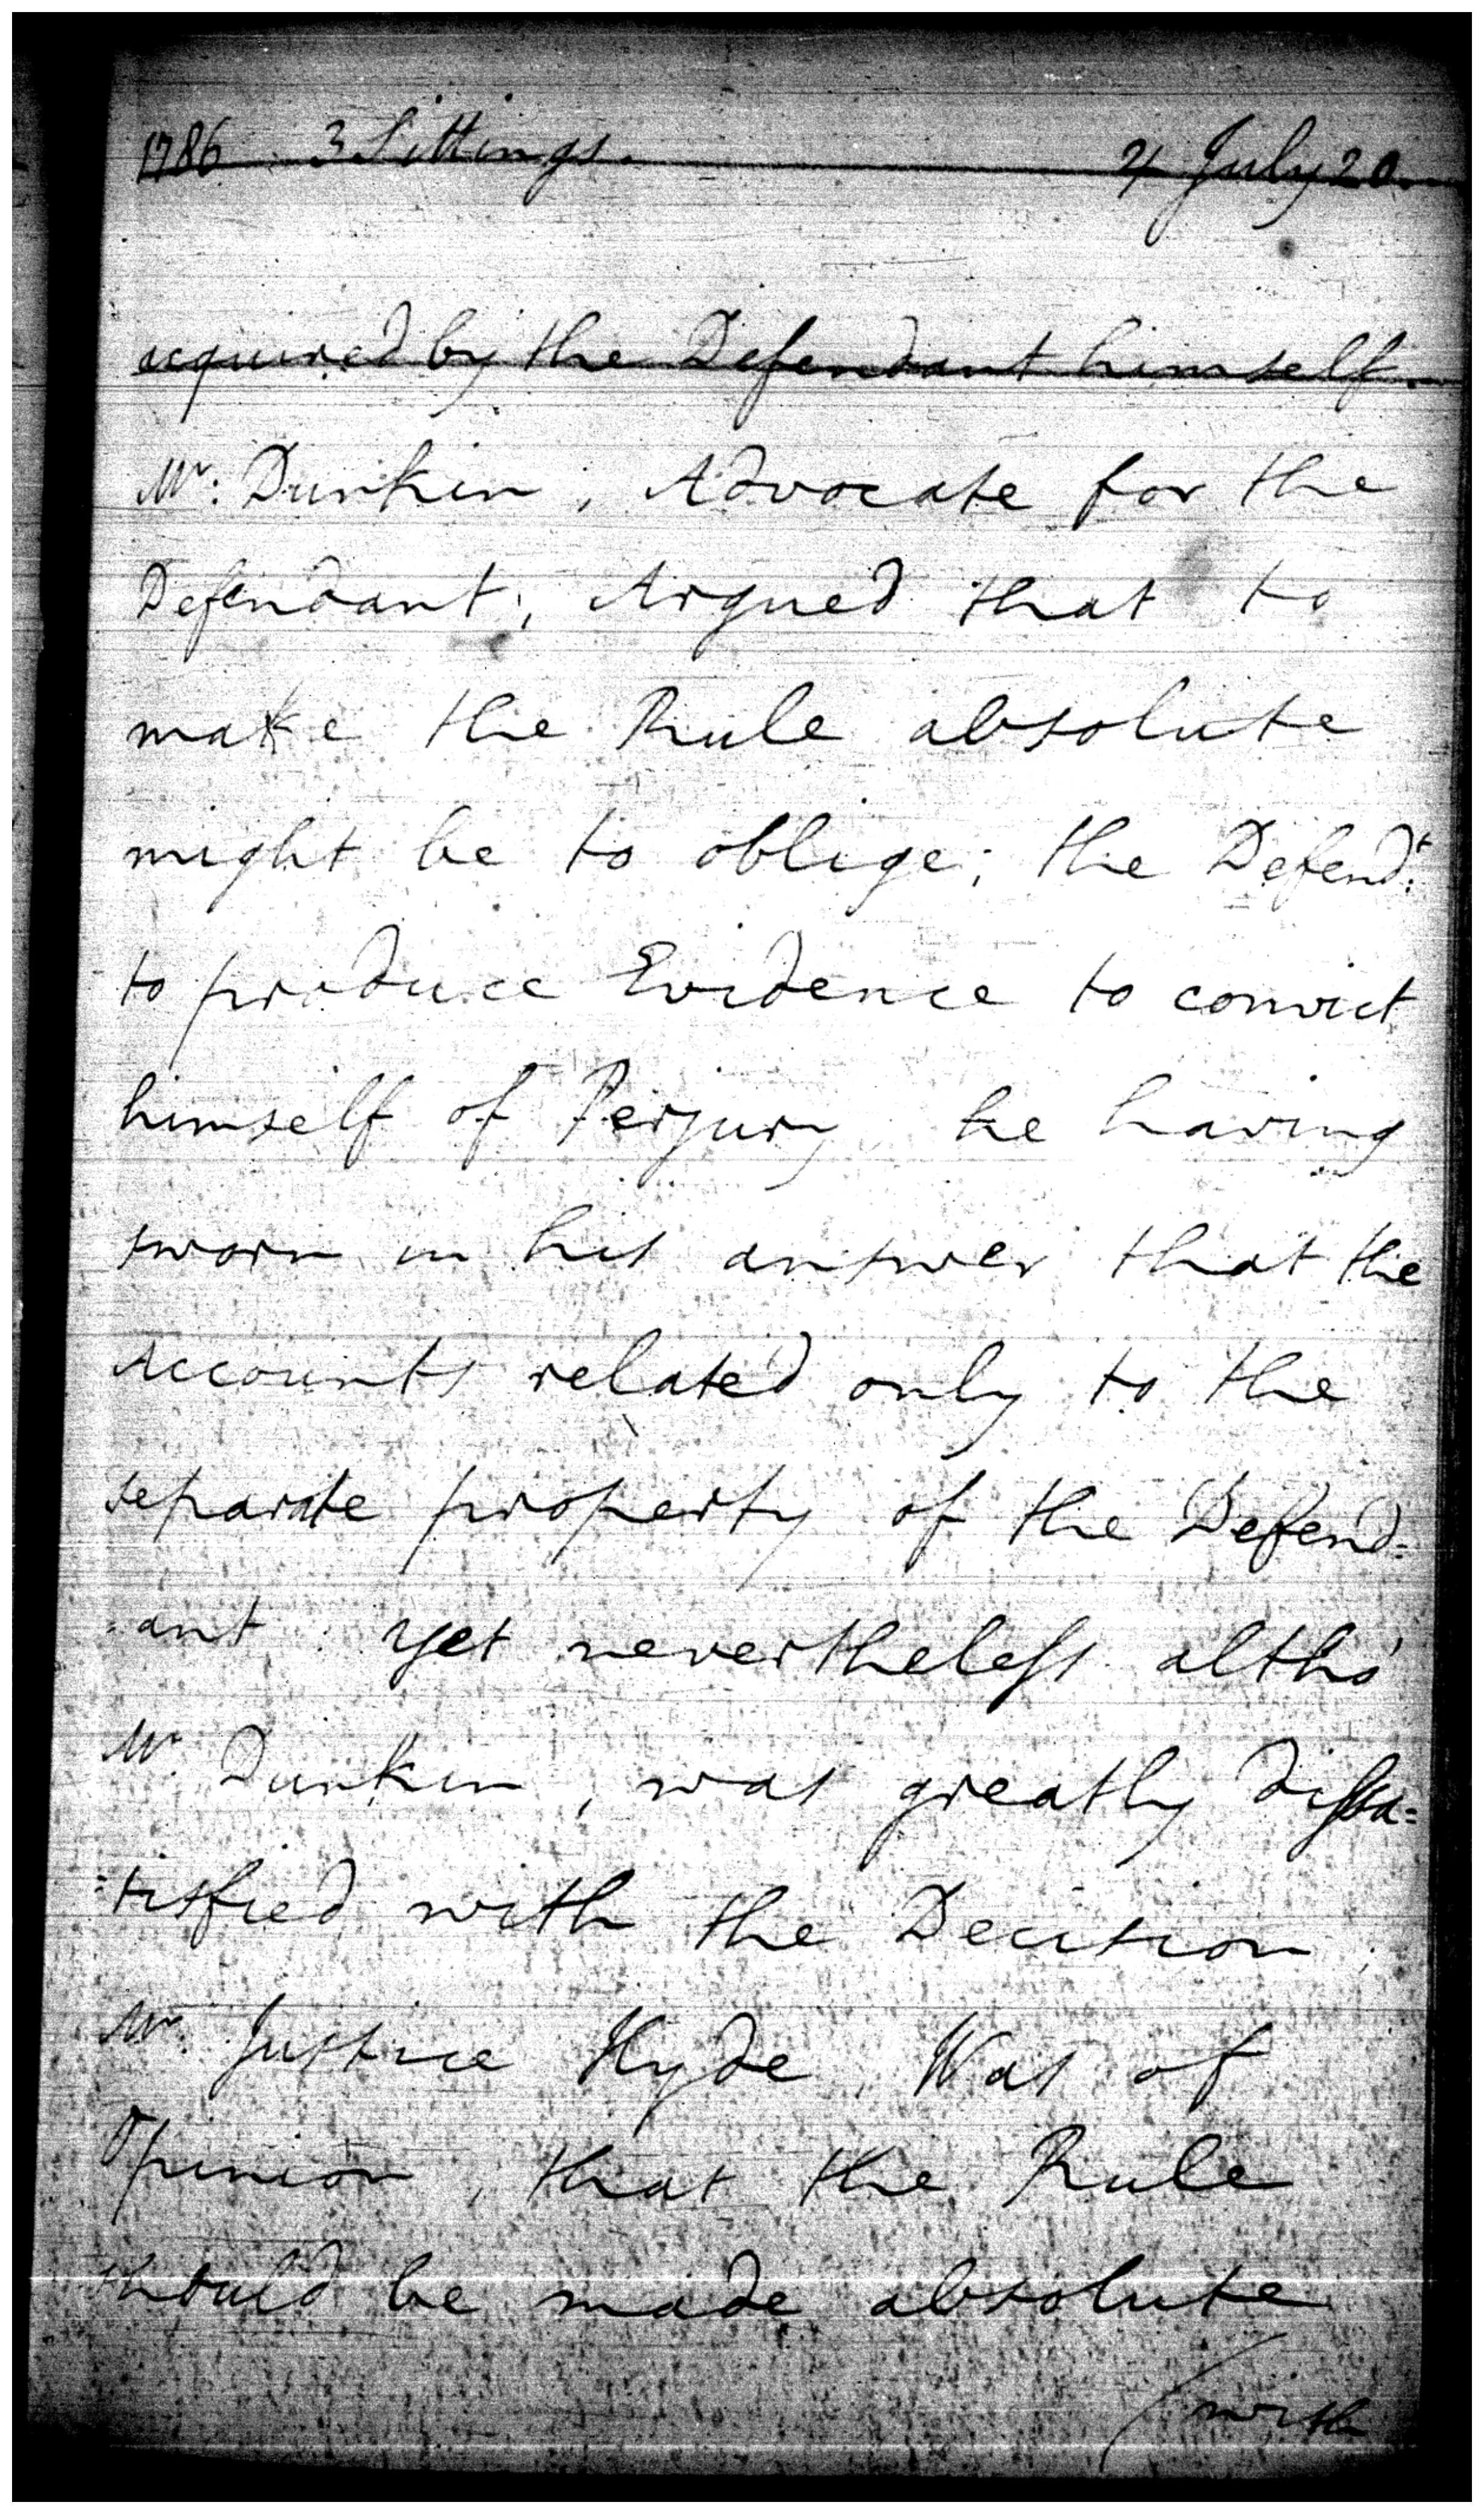 1786 3 Sittings. 4 July 20.
acquired by the Defendant himself.
Mr: Dunkin, Advocate for the
Defendant, Argued that to
make the Rule absolute
might be to oblige, the Defend:t
to produce Evidence to convict
himself of Perjury, he having
sworn in his answer that the
Accounts related only to the
separate property of the Defend:
:ant. Yet nevertheless altho'
Mr. Dunkin, was greatly dissa=
=tisfied with the Decision,
Mr. Justice Hyde, Was of
Opinion, that the Rule
should be made absolute
/with